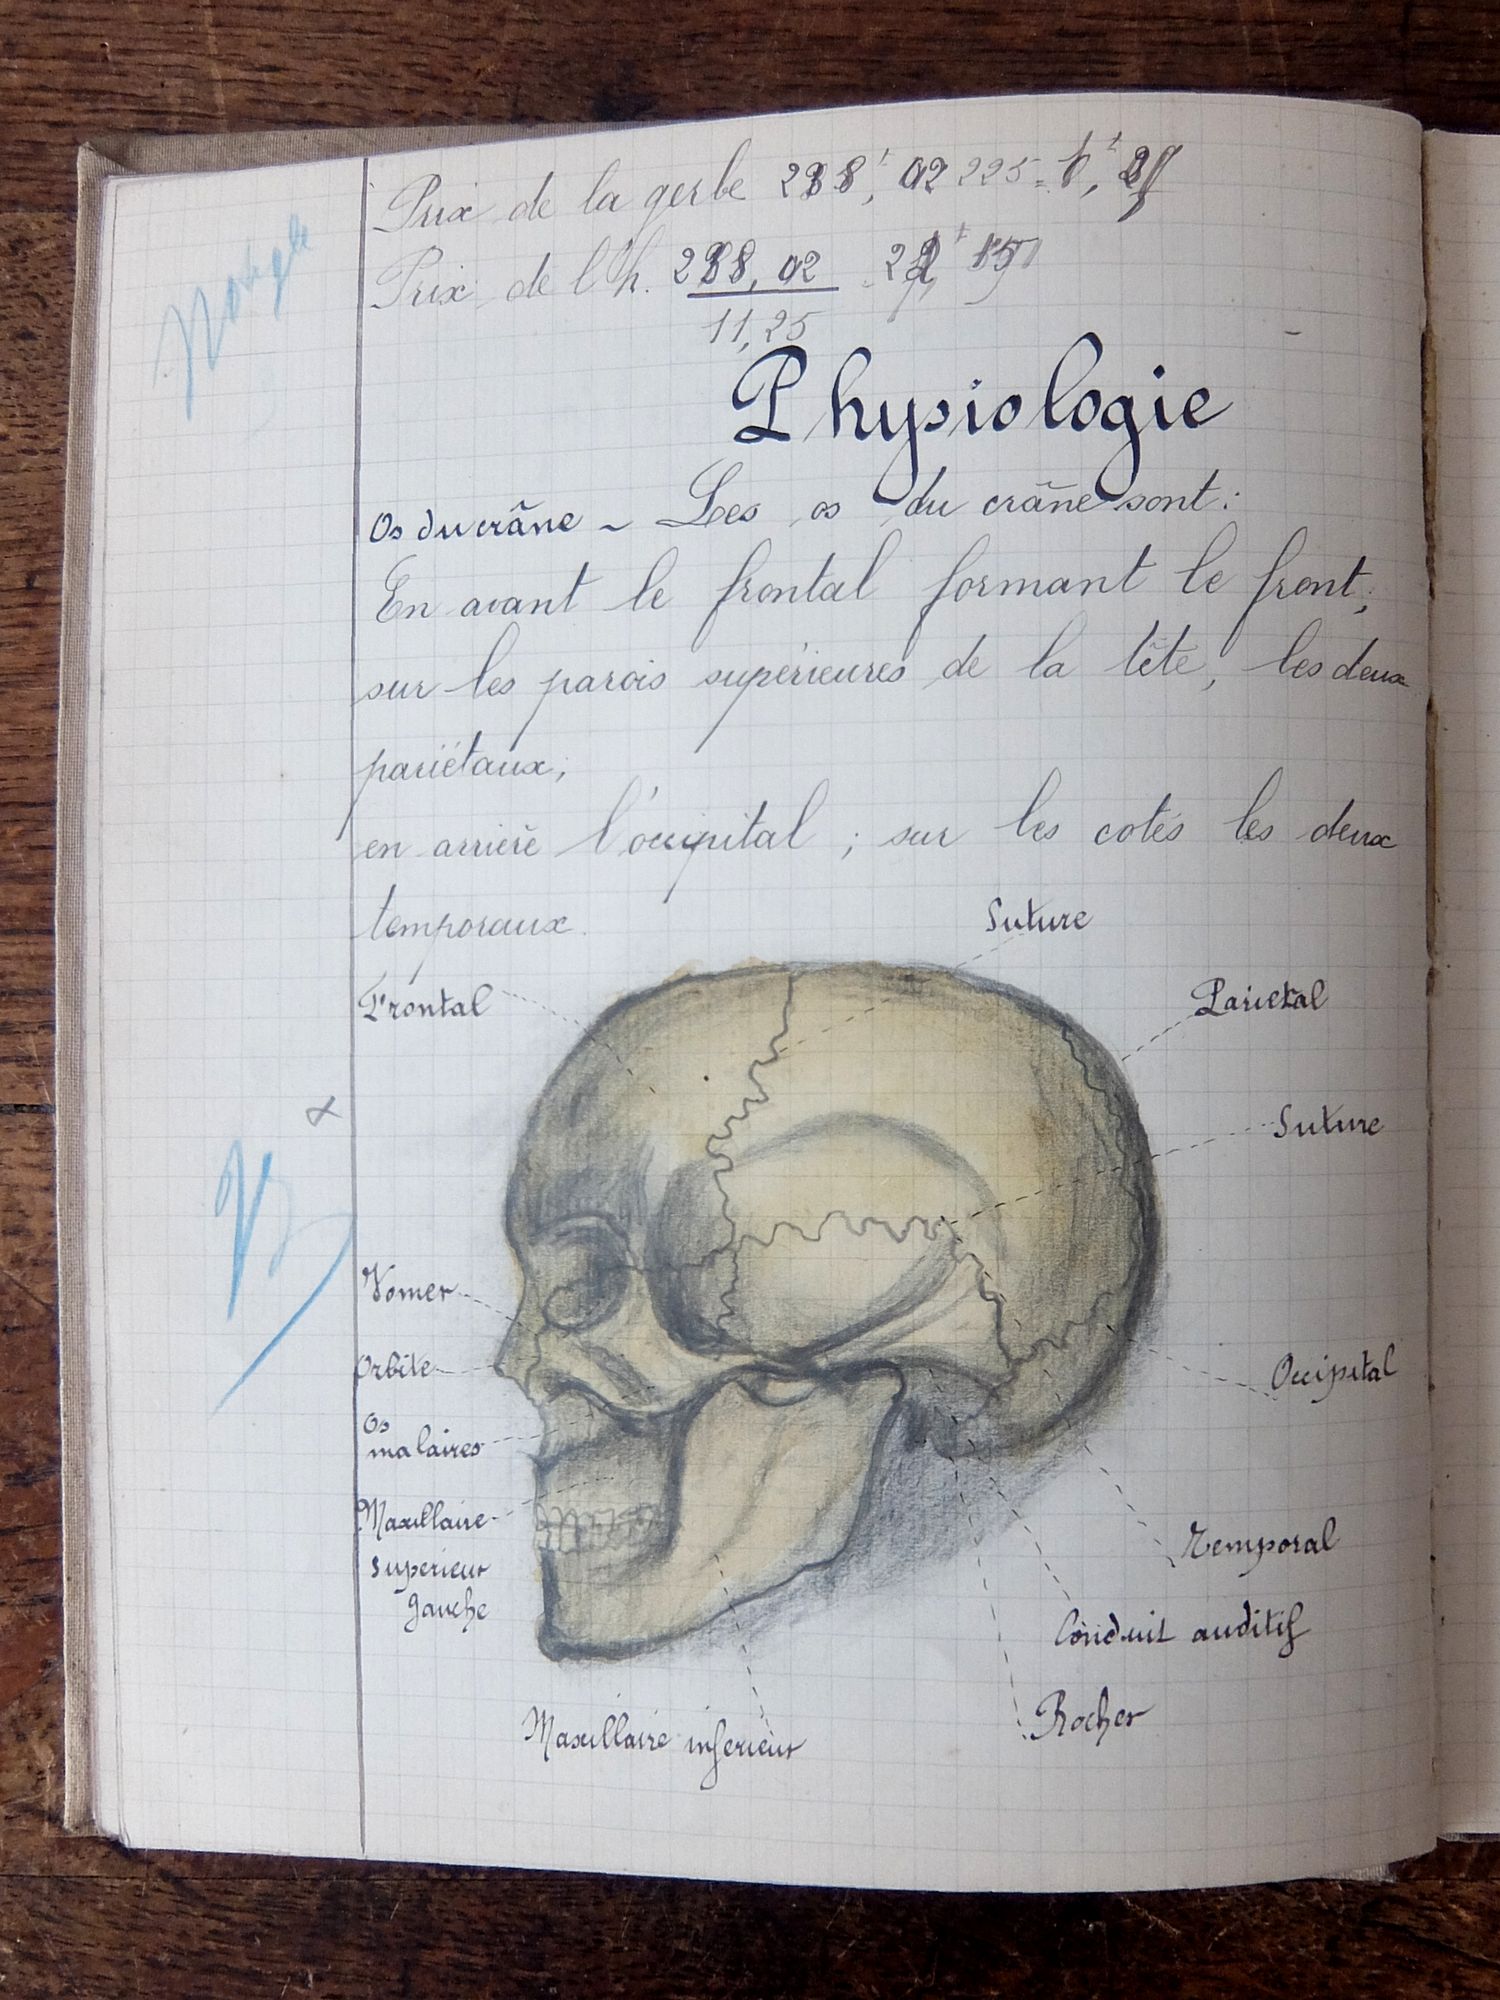 Prix de la gerbe
Prix de l'h.
11,25
Physiologie
Os du crâne - Les os du crâne sont:
En avant le frontal formant le front;
sur les parois supérieures de la tête, les deux
pariétaux;
en arrière l'occipital; sur les cotés les deux
temporaux.
Suture
Frontal
Pariétal
Suture
Vomer
Orbite
Occipital
Os
malaires
Maxillaire
supérieur
gauche
Temporal
Conduit auditif
Rocher
Maxillaire inférieur